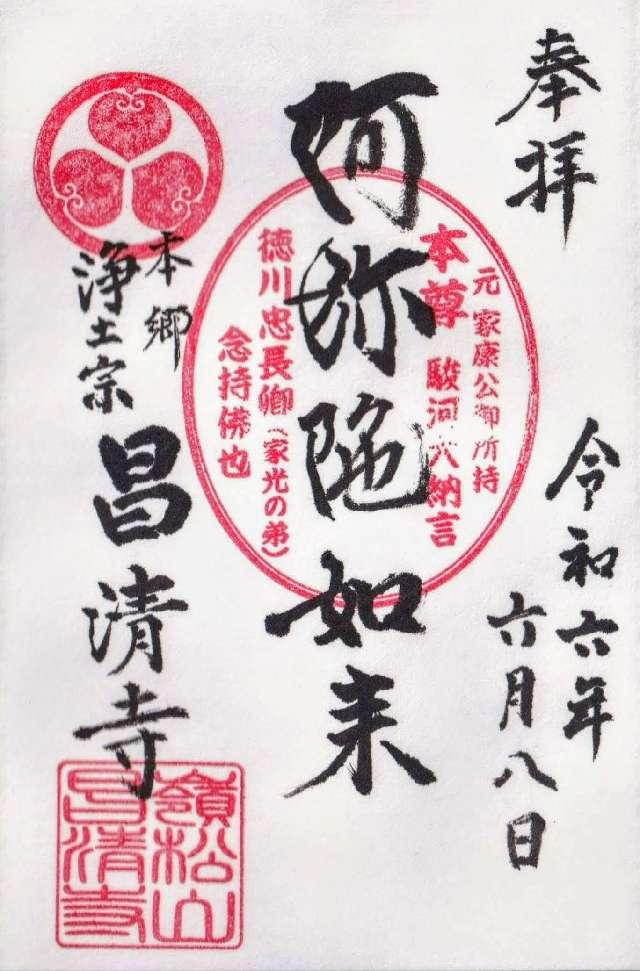 奉拝
令和六年
六月八日
阿弥陀如来
元 家康公御所持
本尊 駿河大納言
徳川忠長卿(家光の弟)
念持佛也
本郷
浄土宗
昌清寺
嶺松山
昌清寺